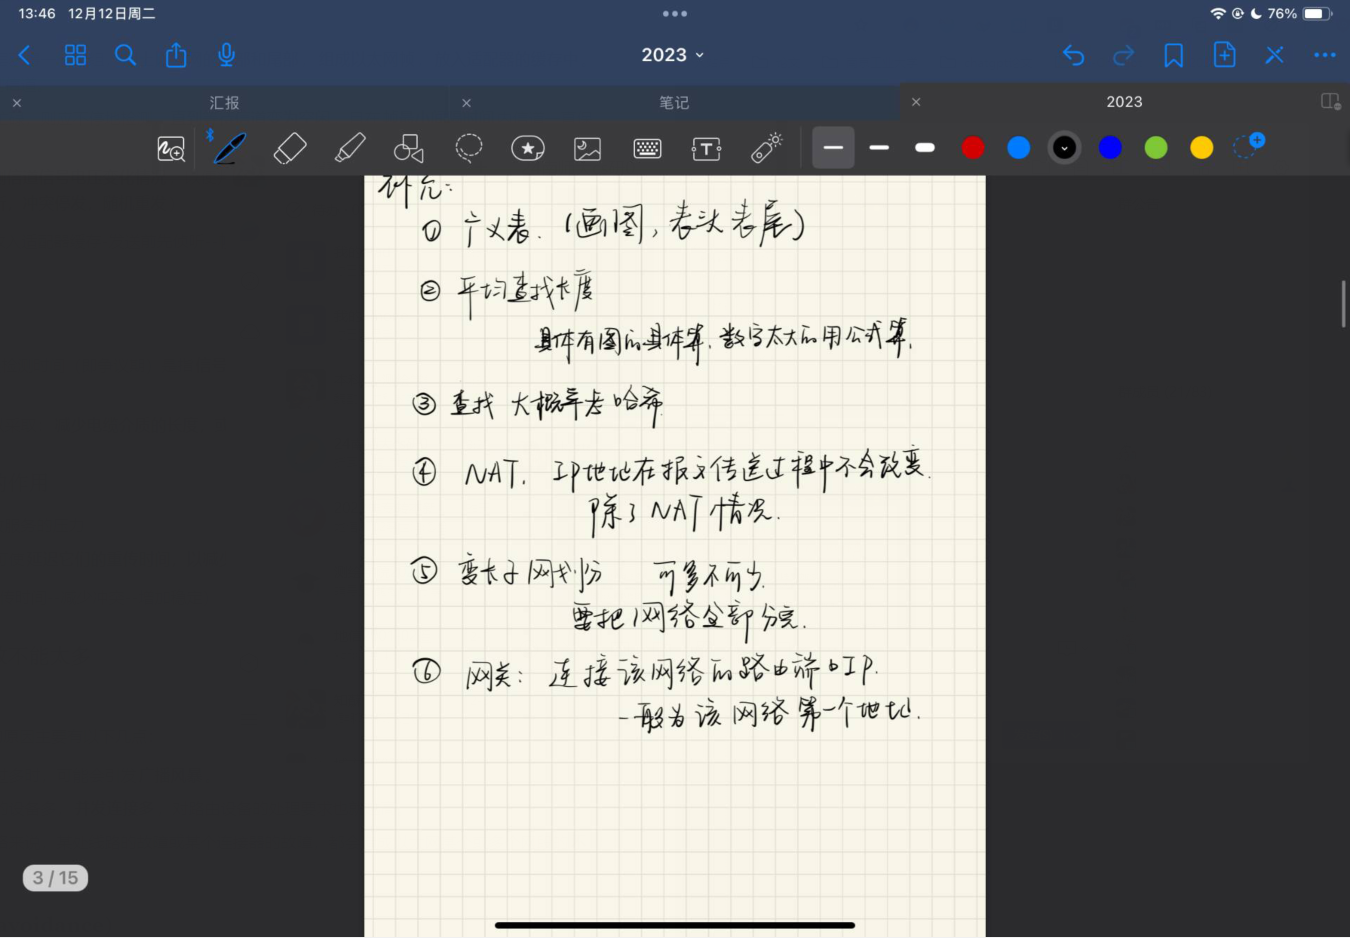 13:46 12月12日周二
76%
2023
汇报
笔记
2023
补充:
① 广义表.(画图,表头表尾)
② 平均查找长度
具体有图的具体算,数字太大的用公式算.
③ 查找 大概率考哈希
④ NAT. IP地址在报文传送过程中不会改变.
除了NAT情况.
⑤ 变长子网划份 可多不可少.
要把1网络全部分完.
⑥ 网关: 连接该网络的路由端口IP.
一般为该网络第一个地址.
3 / 15